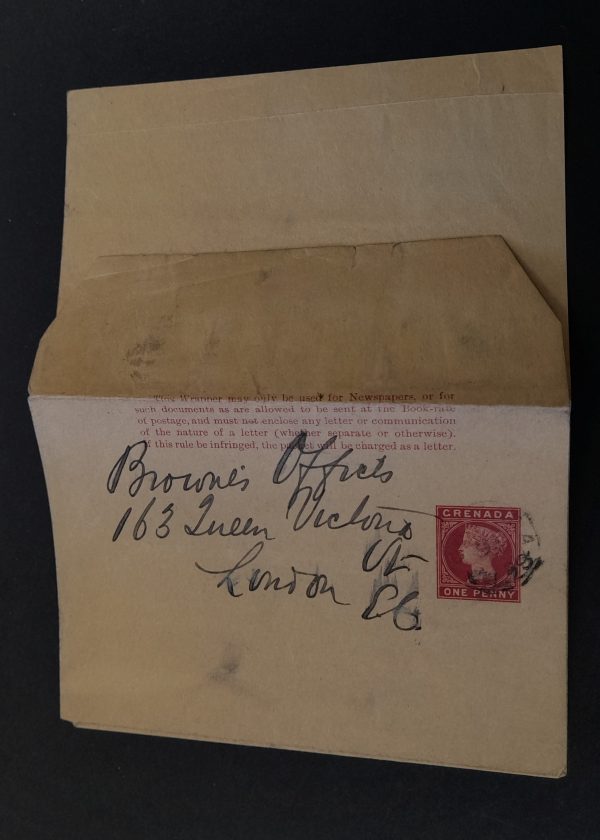 This Wrapper may only be used for Newspapers, or for
such documents as are allowed to be sent at the Book-rate
of postage, and must not enclose any letter or communication
of the nature of a letter (whether separate or otherwise).
If this rule be infringed, the packet will be charged as a letter.
Browne's Offices
163 Queen Victoria
St
London E.C.
GRENADA
ONE PENNY